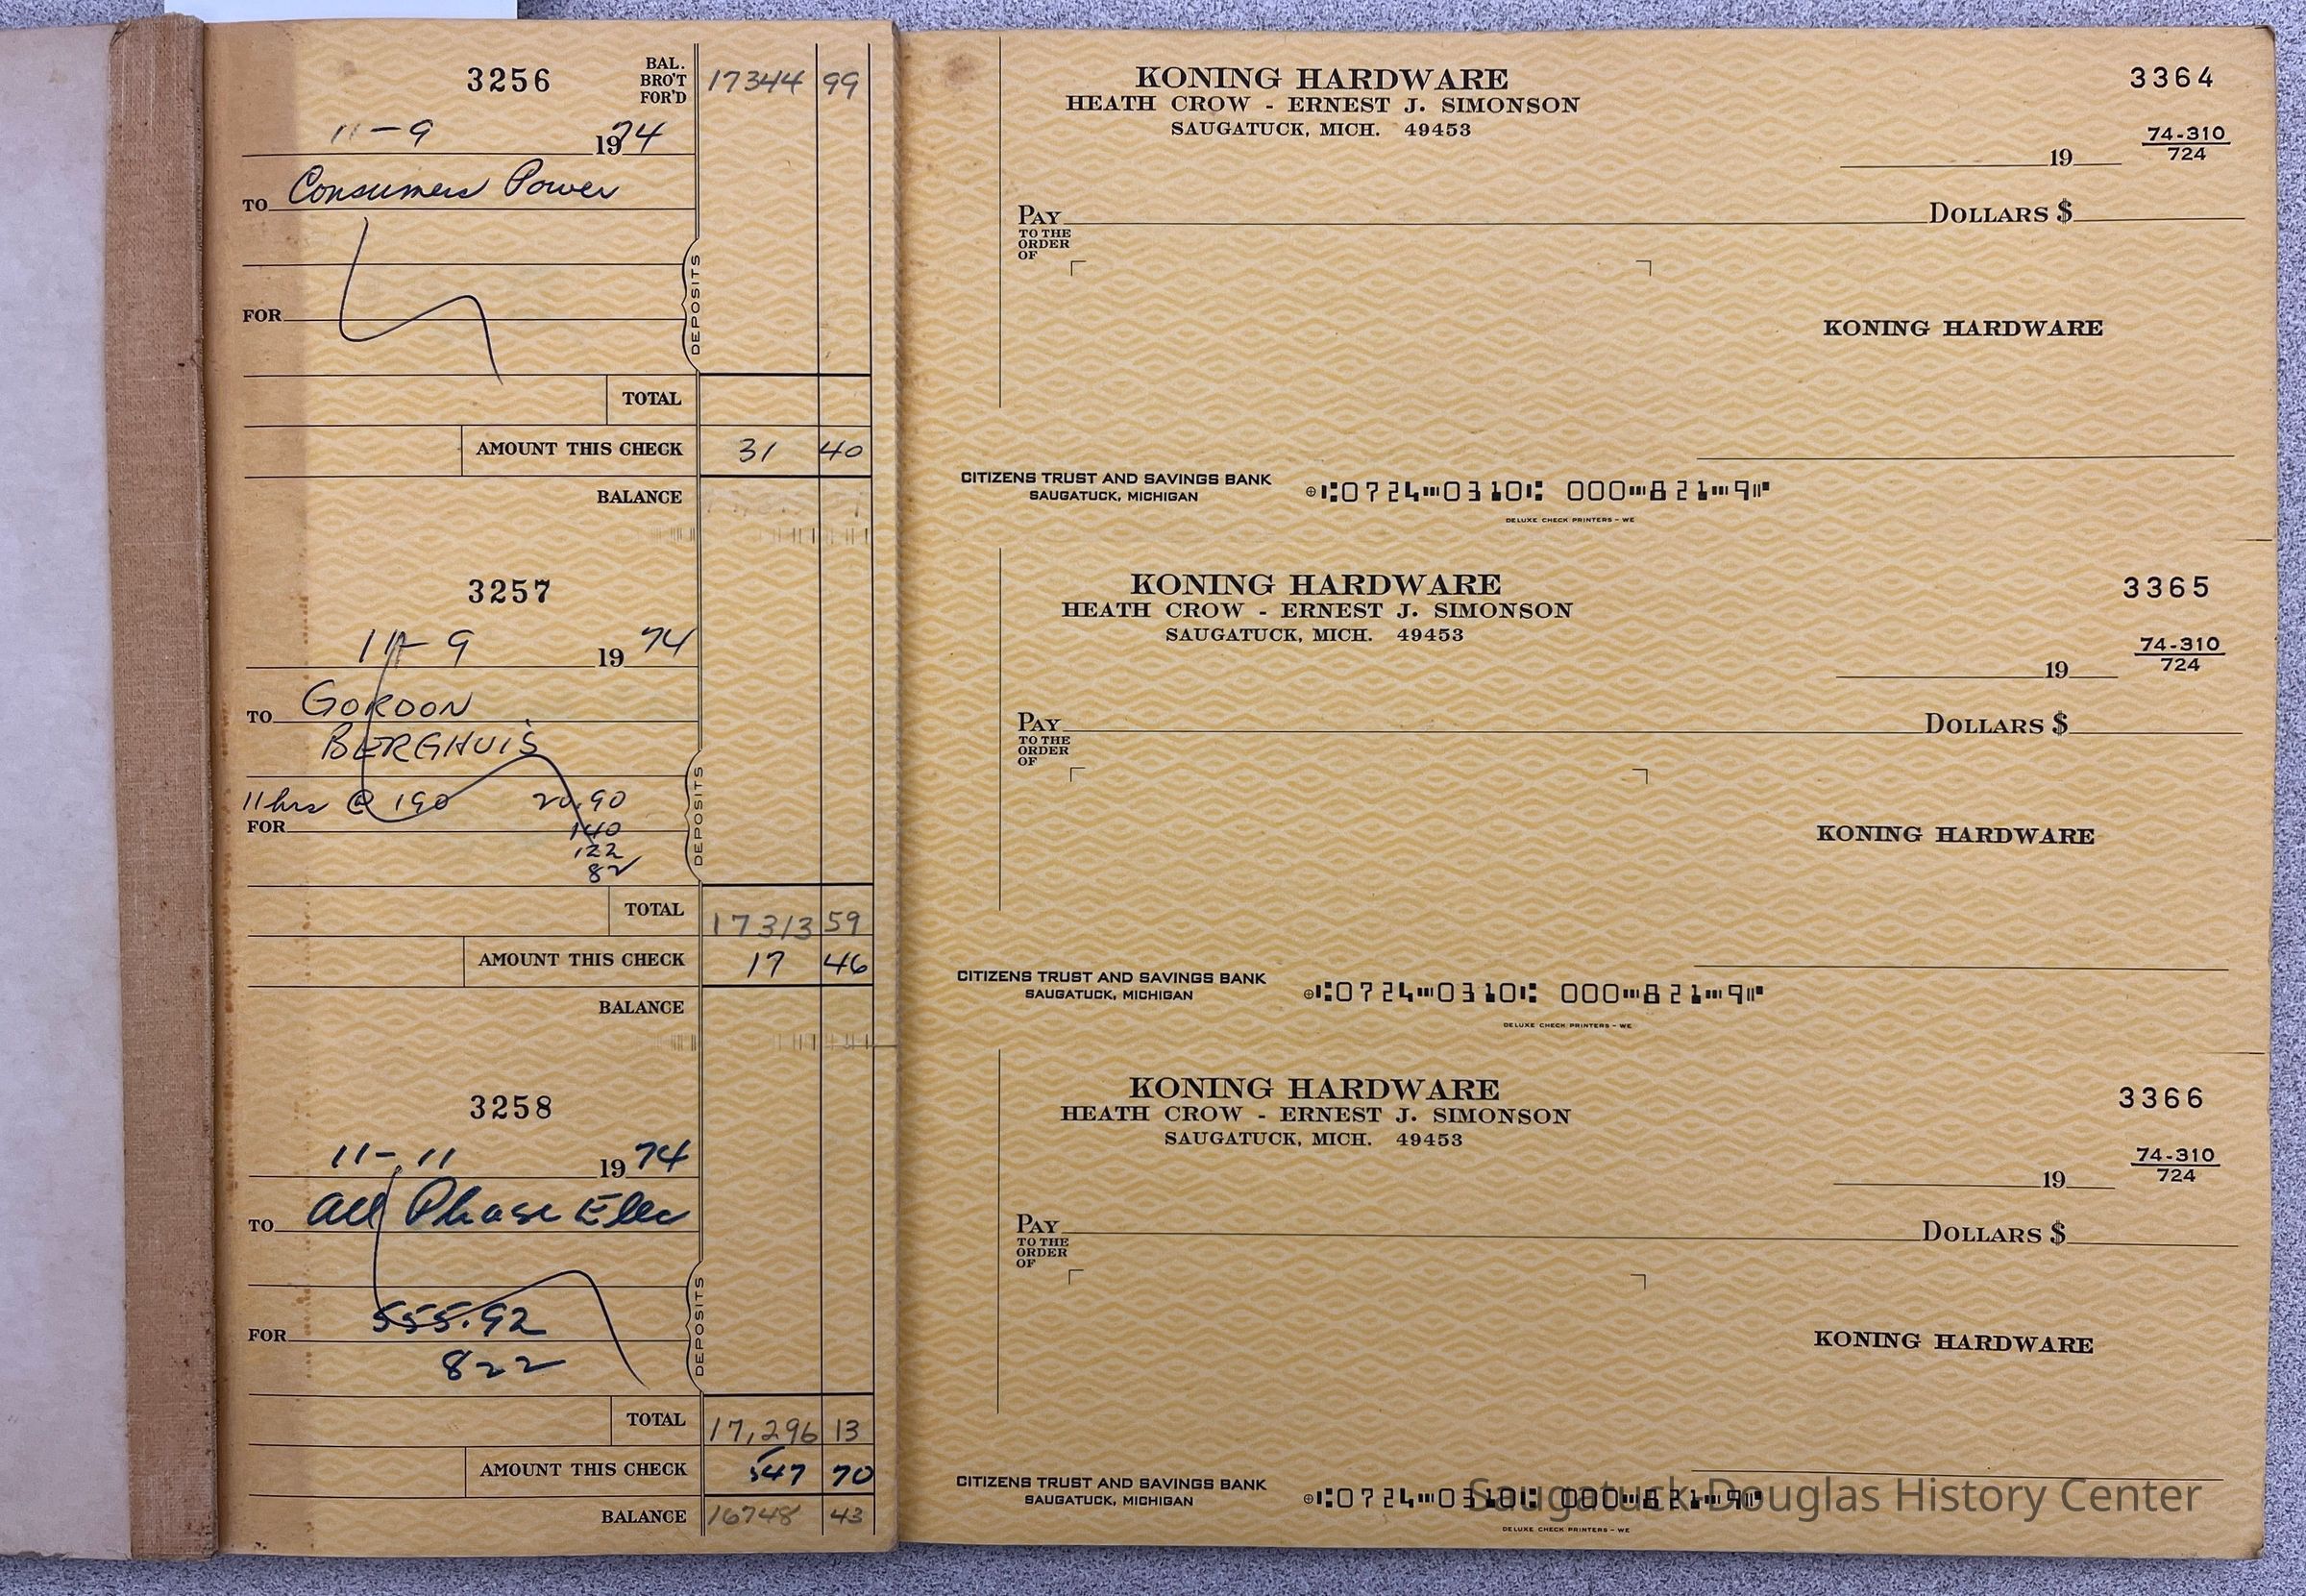 3256
BAL.
BRO'T
FOR'D
17344 99
11-9 1974
TO Consumers Power
FOR
DEPOSITS
TOTAL
AMOUNT THIS CHECK 31 40
BALANCE
3257
11-9 1974
TO GORDON
BERGHUIS
11 hrs @ 190 20.90
FOR
140
122
82
DEPOSITS
TOTAL 17313 59
AMOUNT THIS CHECK 17 46
BALANCE
3258
11-11 1974
TO All Phase Elec
555.92
FOR
822
DEPOSITS
TOTAL 17,296 13
AMOUNT THIS CHECK 547 70
BALANCE 16748 43
KONING HARDWARE
HEATH CROW - ERNEST J. SIMONSON
SAUGATUCK, MICH. 49453
3364
74-310
724
19
PAY DOLLARS $
TO THE
ORDER
OF
KONING HARDWARE
CITIZENS TRUST AND SAVINGS BANK
SAUGATUCK, MICHIGAN
⑆0724⑉0310⑆ 000⑉821⑉9⑈
DELUXE CHECK PRINTERS - WE
KONING HARDWARE
HEATH CROW - ERNEST J. SIMONSON
SAUGATUCK, MICH. 49453
3365
74-310
724
19
PAY DOLLARS $
TO THE
ORDER
OF
KONING HARDWARE
CITIZENS TRUST AND SAVINGS BANK
SAUGATUCK, MICHIGAN
⑆0724⑉0310⑆ 000⑉821⑉9⑈
DELUXE CHECK PRINTERS - WE
KONING HARDWARE
HEATH CROW - ERNEST J. SIMONSON
SAUGATUCK, MICH. 49453
3366
74-310
724
19
PAY DOLLARS $
TO THE
ORDER
OF
KONING HARDWARE
CITIZENS TRUST AND SAVINGS BANK
SAUGATUCK, MICHIGAN
⑆0724⑉0310⑆ 000⑉821⑉9⑈
DELUXE CHECK PRINTERS - WE
Saugatuck-Douglas History Center